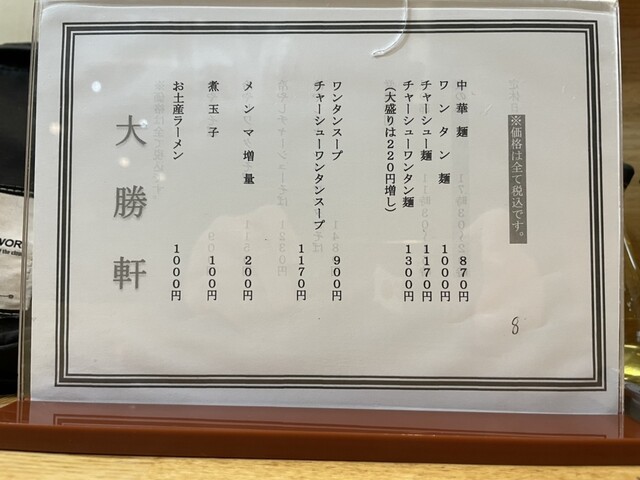 ※価格は全て税込です。
中華麺 870円
ワンタン麺 1000円
チャーシュー麺 1170円
チャーシューワンタン麺 1300円
(大盛りは220円増し)
ワンタンスープ 900円
チャーシューワンタンスープ 1170円
メンマ増量 200円
煮玉子 100円
お土産ラーメン 1000円
大勝軒
8